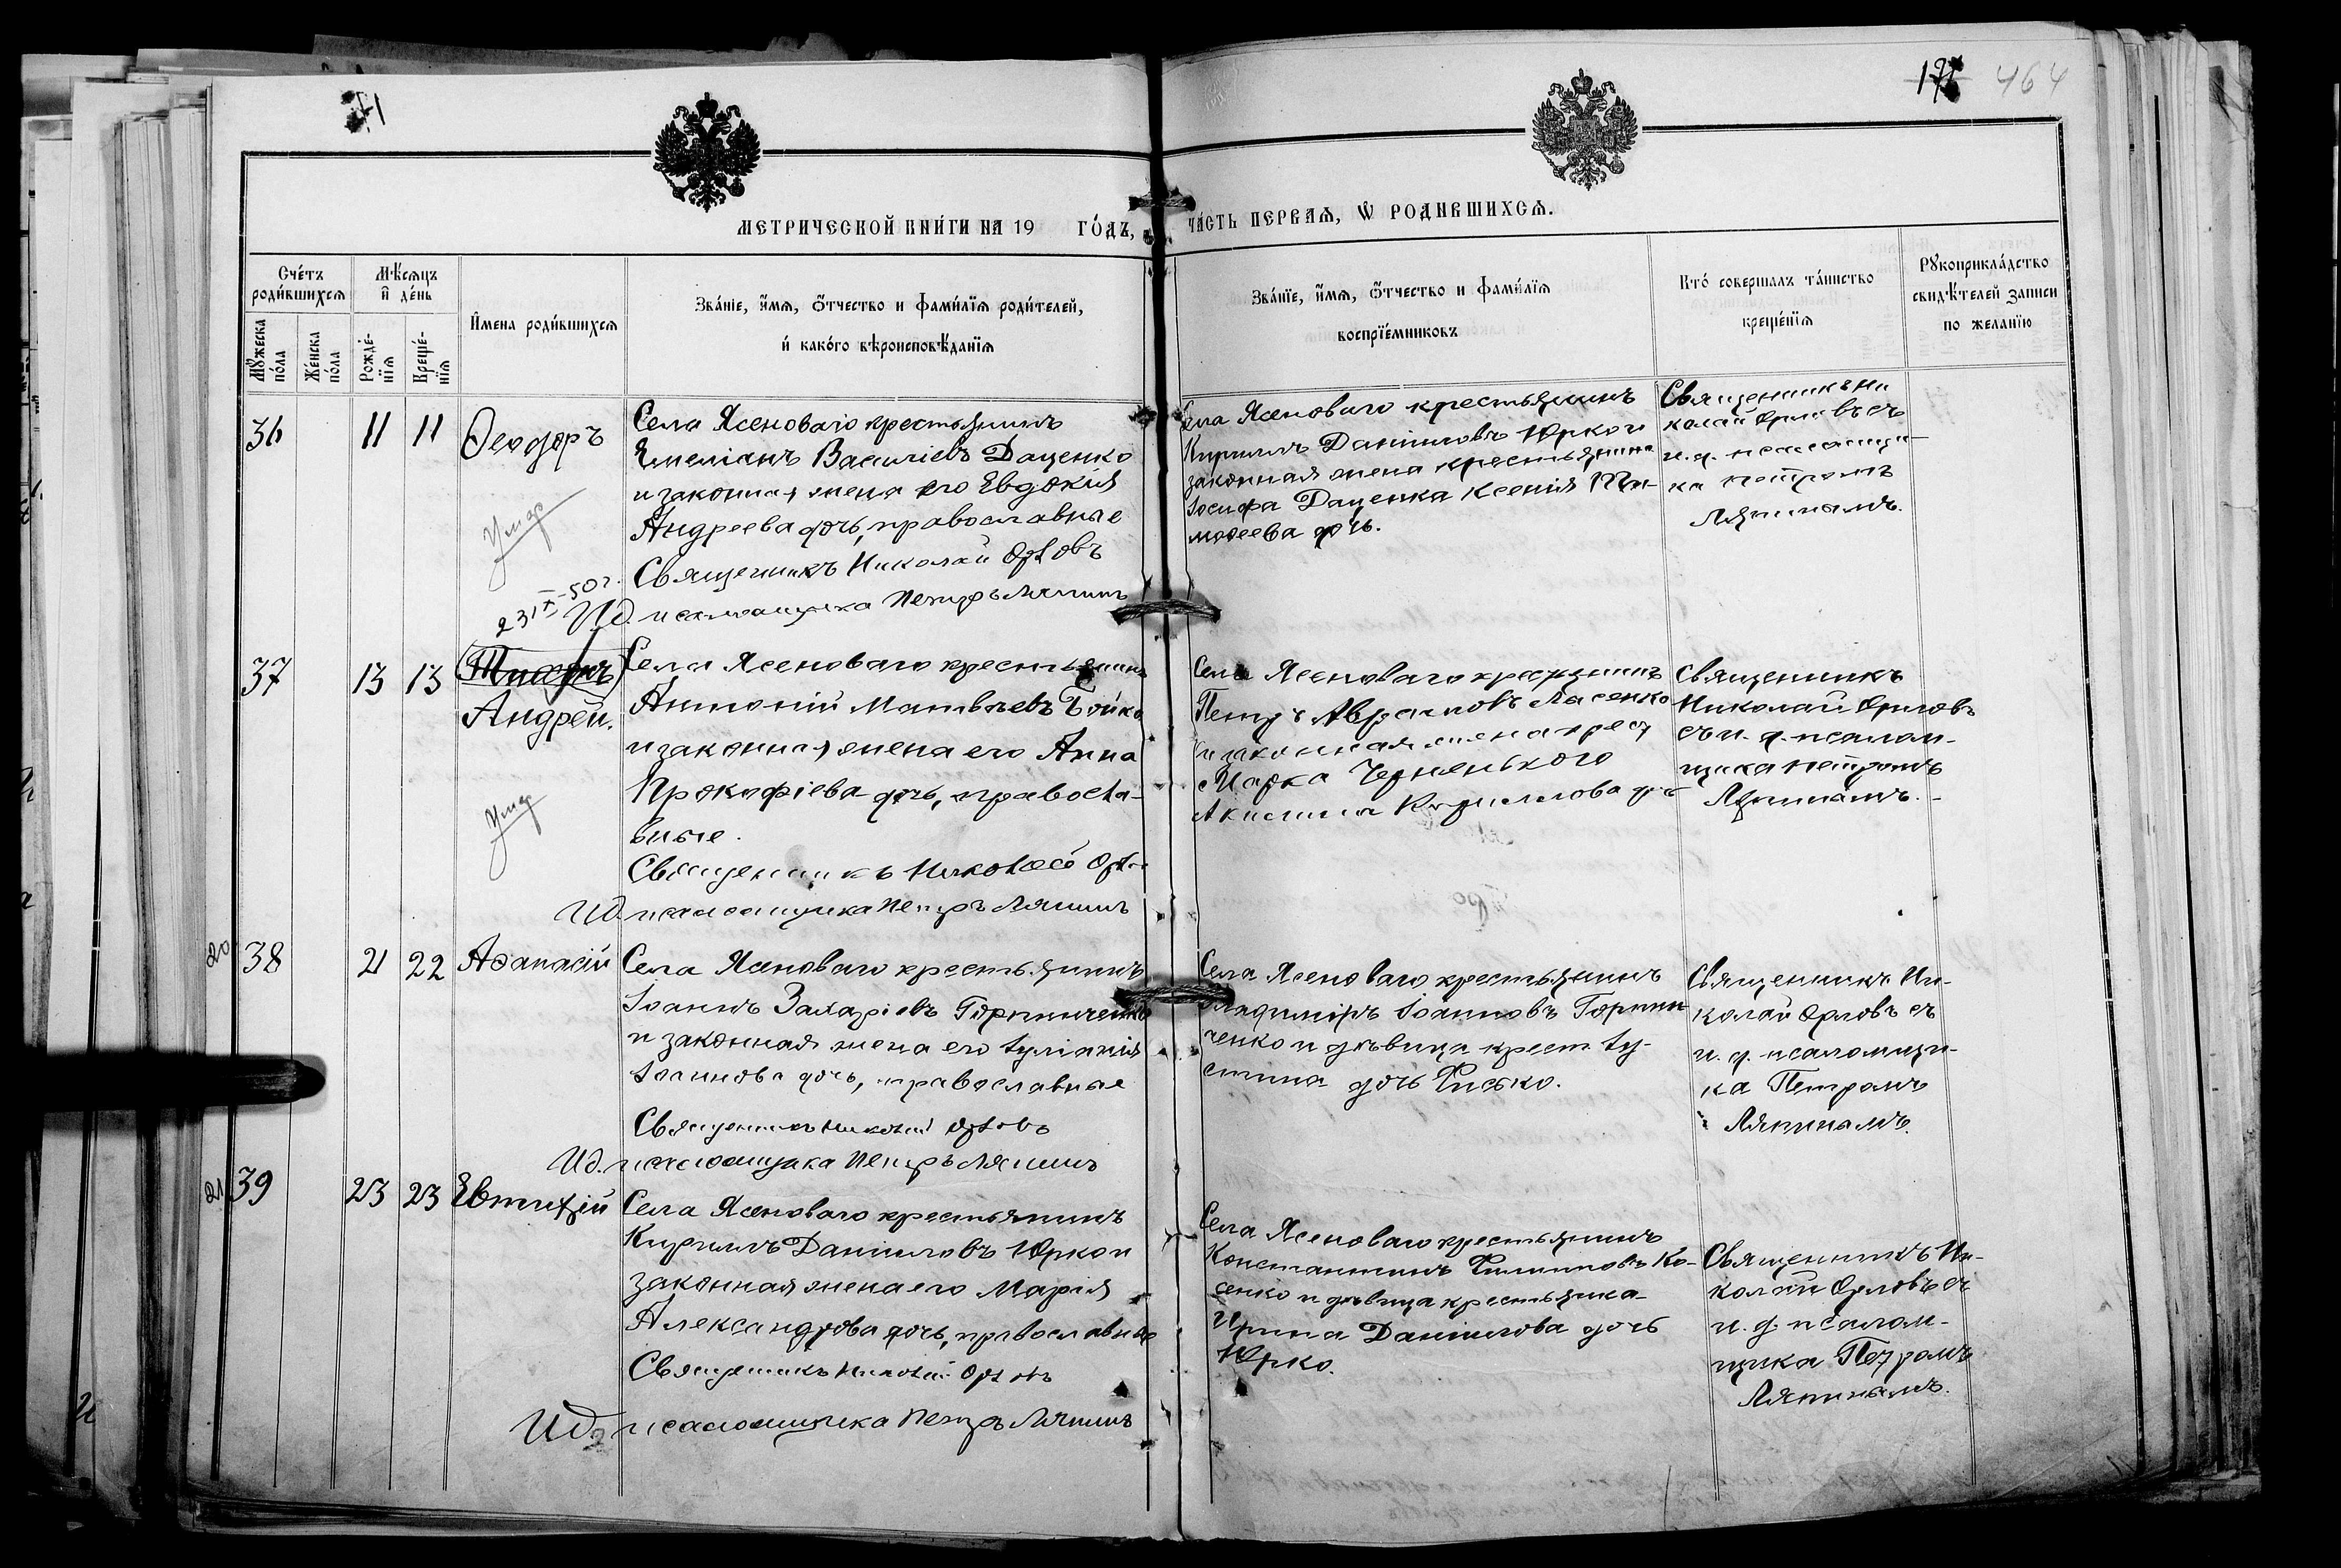 71
171 464
МЕТРИЧЕСКОЙ КНИ́ГИ НА 19 ГО́ДЪ,
ЧА́СТЬ ПЕРВАѦ, Ѡ҆ РОДИВШИХСѦ.
Сче́тъ роди́вшихсѧ
Мѣ́сѧцъ и҆ де́нь
И҆мена роди́вшихсѧ
Зва́нїе, и҆́мѧ, ѻ҆́тчество и фами́лїѧ роди́телей,
и҆ како́го вѣроисповѣ́данїѧ
Мꙋ́жеска по́ла
Же́нска по́ла
Рожде́нїѧ
Креще́нїѧ
Зва́нїе, и҆́мѧ, ѻ҆́тчество и фами́лїѧ
воспрїе́мниковъ
Кто́ совершалъ та́инство
креще́нїѧ
Рꙋкоприкла́дство
свидѣ́телей записи
по желанїю
36 11 11 Ѳеодоръ
Села Ясеноваго крестьянинъ
Емеліанъ Василіевъ Даценко
и законная жена его Евдокія
Андреева дочь, православные
Священникъ Николай Орловъ
И.д. псаломщика Петръ Ляпинъ
Умер
23/X-50 г.
Села Ясеноваго крестьянинъ
Кириллъ Даніиловъ Юрко и
законная жена крестьянина
Іосифа Даценка Ксенія Ти-
моѳеева дочь.
Священникъ Ни
колай Орловъ съ
и.д. псаломщи-
ка Петромъ
Ляпинымъ.
37 13 13
Андрей.
Села Ясеноваго крестьянинъ
Антоній Матвѣевъ Бойко
и законная жена его Анна
Прокофіева дочь, правосла-
вные.
Священникъ Николай Орловъ
И.д. псаломщика Петръ Ляпинъ
Умер
Села Ясеноваго крестьянинъ
Петръ Аврамовъ Ласенко
и законная жена крест
Марка Черненького
Акилина Кириллова дочь
Священникъ
Николай Орловъ
съ и.д. псалом-
щика Петромъ
Ляпинымъ.
20 38 21 22 Аѳанасій
Села Ясеноваго крестьянинъ
Іоаннъ Захаріевъ Горпинченко
и законная жена его Іуліанія
Іоаннова дочь, православные
Священникъ Николай Орловъ
И.д. псаломщика Петръ Ляпинъ
Села Ясеноваго крестьянинъ
Владиміръ Іоанновъ Горпин
ченко и дѣвица крест. Іу-
стина дочь Фисько.
Священникъ Ни-
колай Орловъ съ
и.д. псаломщи-
ка Петромъ
Ляпинымъ.
21 39 23 23 Евтихій
Села Ясеноваго крестьянинъ
Кириллъ Даніиловъ Юрко и
законная жена его Марія
Александрова дочь, православные
Священникъ Николай Орловъ
И.д. псаломщика Петръ Ляпинъ
Села Ясеноваго крестьянинъ
Константинъ Филипповъ Ко-
сенко и дѣвица крестьянка
Ирина Даніилова дочь
Юрко.
Священникъ Ни-
колай Орловъ съ
и.д. псалом-
щика Петромъ
Ляпинымъ.